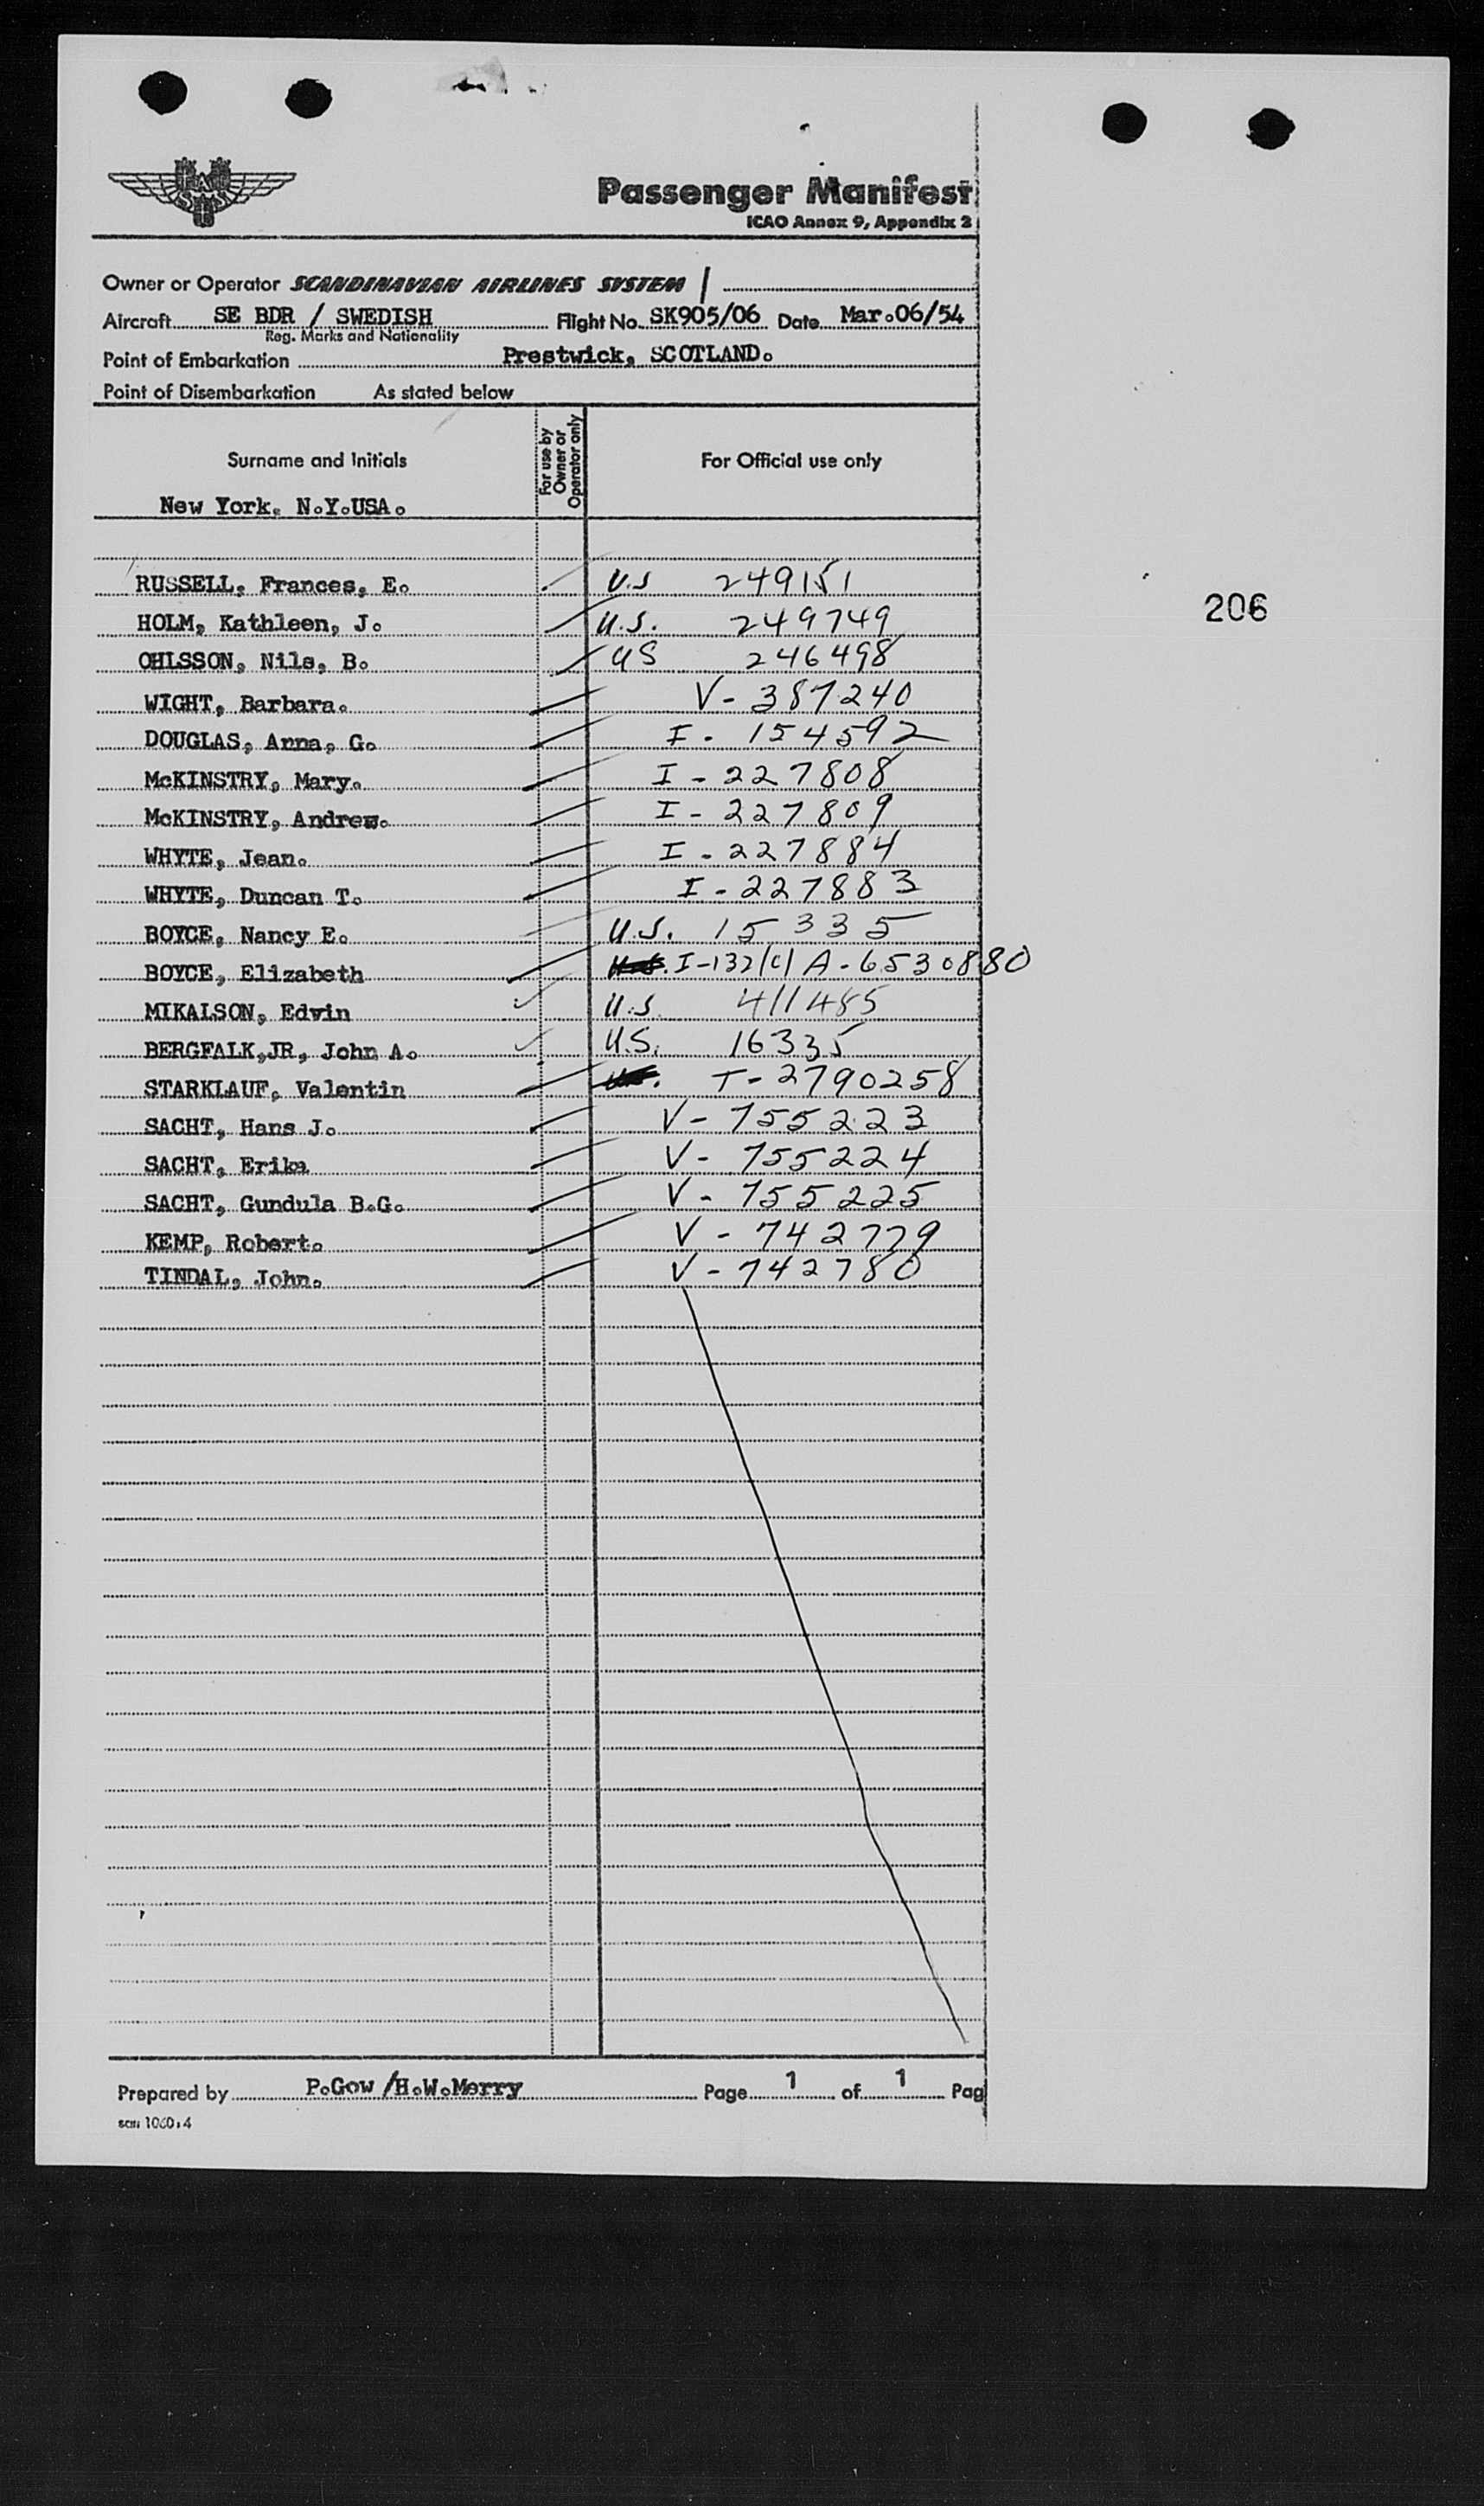 SAS
Passenger Manifest
ICAO Annex 9, Appendix 2
Owner or Operator SCANDINAVIAN AIRLINES SYSTEM /
Aircraft SE BDR / SWEDISH Flight No. SK905/06 Date Mar.06/54
Reg. Marks and Nationality
Point of Embarkation Prestwick, SCOTLAND.
Point of Disembarkation As stated below
Surname and Initials For use by Owner or Operator only For Official use only
New York, N.Y.USA.
RUSSELL, Frances, E. U.S 249151
HOLM, Kathleen, J. U.S. 249749
206
OHLSSON, Nils, B. US 246498
WIGHT, Barbara. V- 387240
DOUGLAS, Anna, G. I - 154592
McKINSTRY, Mary. I - 227808
McKINSTRY, Andrew. I - 227809
WHYTE, Jean. I - 227884
WHYTE, Duncan T. I - 227883
BOYCE, Nancy E. U.S. 15335
BOYCE, Elizabeth I-132(c) A-6530880
MIKALSON, Edvin U.S. 411485
BERGFALK,JR, John A. U.S. 16335
STARKLAUF, Valentin T-2790258
SACHT, Hans J. V- 755223
SACHT, Erika V- 755224
SACHT, Gundula B.G. V- 755225
KEMP, Robert. V - 742779
TINDAL, John. V - 742780
Prepared by P.Gow /H.W.Merry Page 1 of 1 Pag